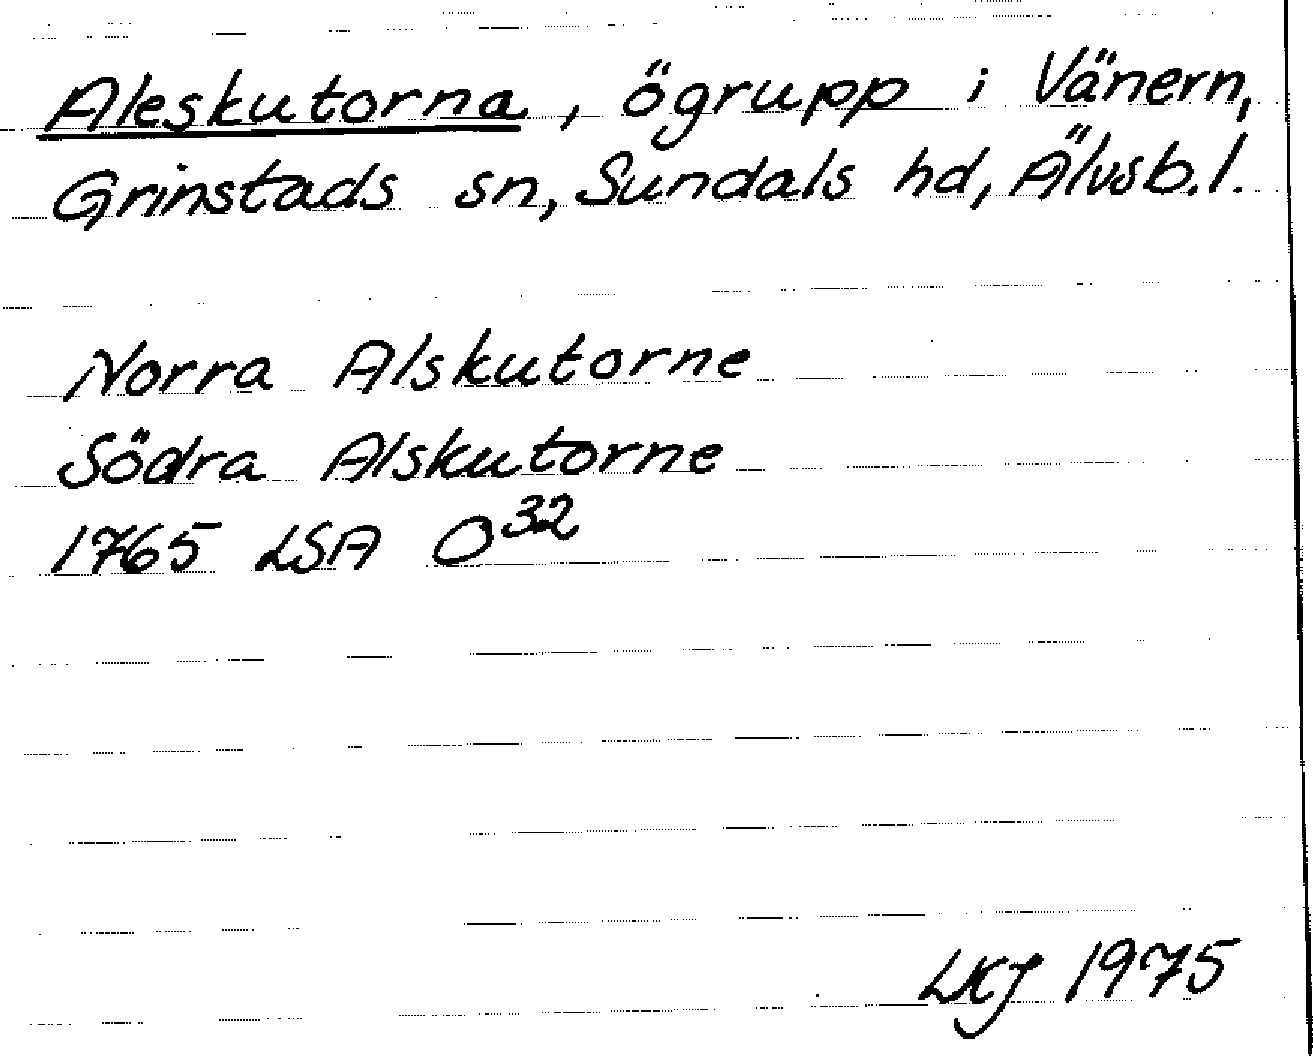 Aleskutorna, ögrupp i Vänern,
Grinstads sn, Sundals hd, Älvsb.l.
Norra Alskutorne
Södra Alskutorne
1765 LSA O³²
LKJ 1975